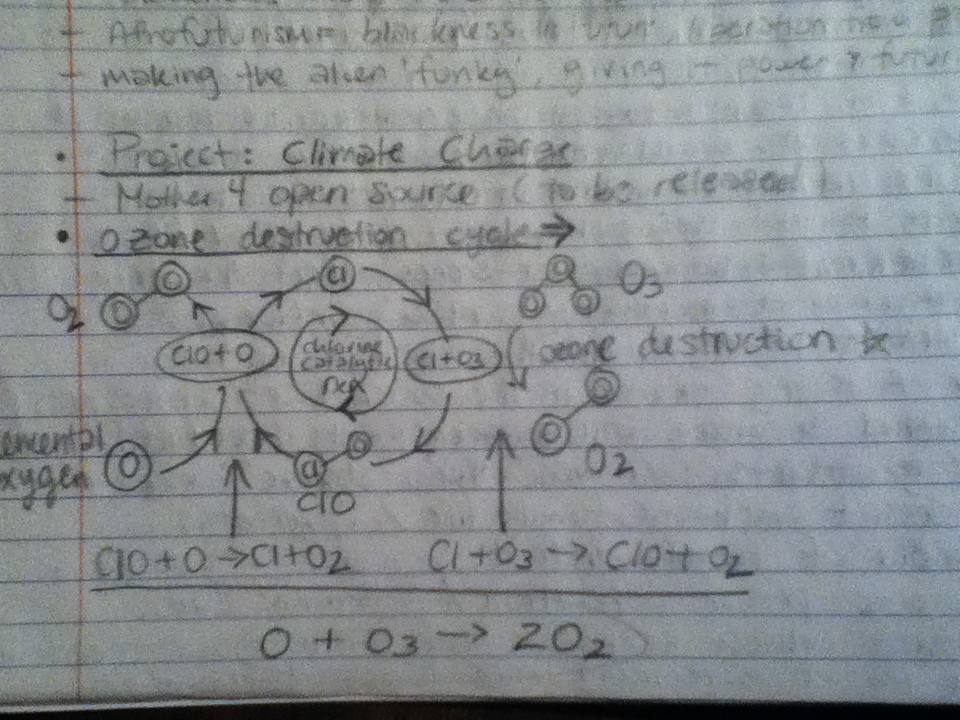 - Afrofuturism = blackness is
- making the alien 'funky', giving it power & futur
• Project: Climate Change
- Mother 4 open source (to be released)
• Ozone destruction cycle →
O2
O O
Cl
O3
O O O
ClO + O
chlorine catalytic rxn
Cl + O3
ozone destruction
O O
O2
O
oxygen
Cl O
ClO
ClO + O → Cl + O2
Cl + O3 → ClO + O2
O + O3 → 2O2